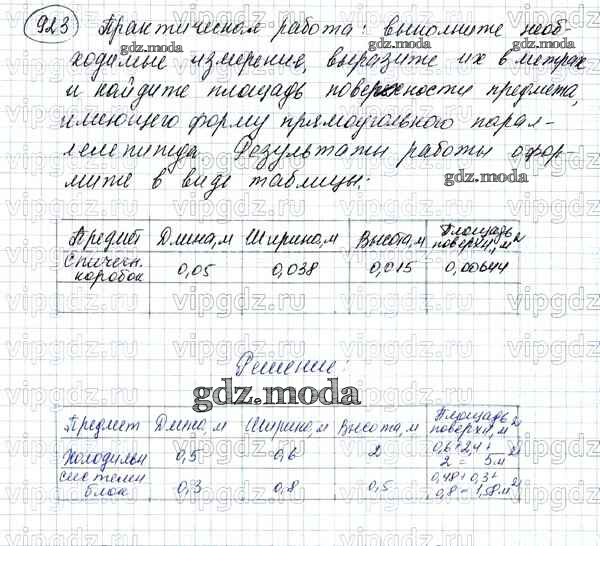 923 Практическая работа: выполните необ-
ходимые измерения, выразите их в метрах
и найдите площадь поверхности предмета,
имеющего форму прямоугольного парал-
лелепипеда. Результаты работы офор-
мите в виде таблицы:
Предмет Длина, м Ширина, м Высота, м Площадь поверхн., м²
Спичечн. коробок 0,05 0,038 0,015 0,00644
Решение:
gdz.moda
Предмет Длина, м Ширина, м Высота, м Площадь поверхн., м²
Холодильн 0,5 0,6 2 0,6+2,4+2 = 5м²
системн блок 0,3 0,8 0,5 0,48+0,3+0,8=1,58м²